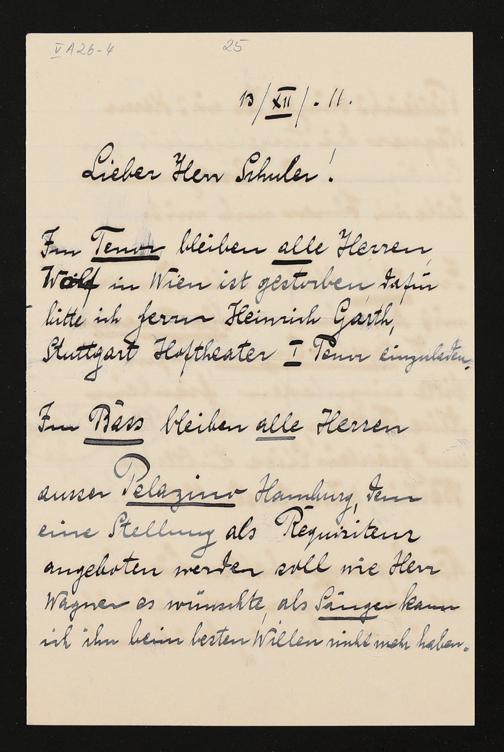 V A 26-4
25
13/XII/. 11.
Lieber Herr Schuler!
Im Tenor bleiben alle Herren,
Wolf in Wien ist gestorben, dafür
bitte ich Herrn Heinrich Garth,
Stuttgart Hoftheater I Tenor einzuladen.
Im Bass bleiben alle Herren
ausser Pelazino Hamburg, dem
eine Stellung als Requisiteur
angeboten werden soll wie Herr
Wagner es wünschte, als Sänger kann
ich ihn beim besten Willen nicht mehr haben.